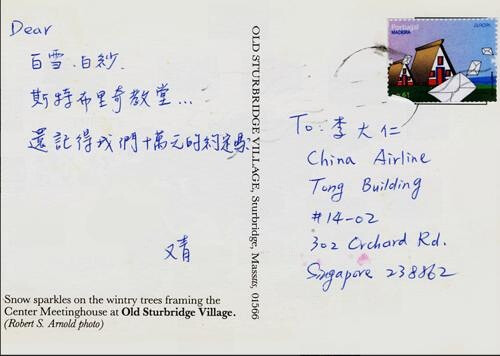 Dear
百雪.白紗.
斯特布里奇教堂...
還記得我們十萬元的約定嗎
又青
Snow sparkles on the wintry trees framing the
Center Meetinghouse at Old Sturbridge Village.
(Robert S. Arnold photo)
OLD STURBRIDGE VILLAGE, Sturbridge, Massts, 01566
Portugal
MADEIRA
EUROPA
To: 李大仁
China Airline
Tong Building
#14-02
302 Orchard Rd.
Singapore 238862